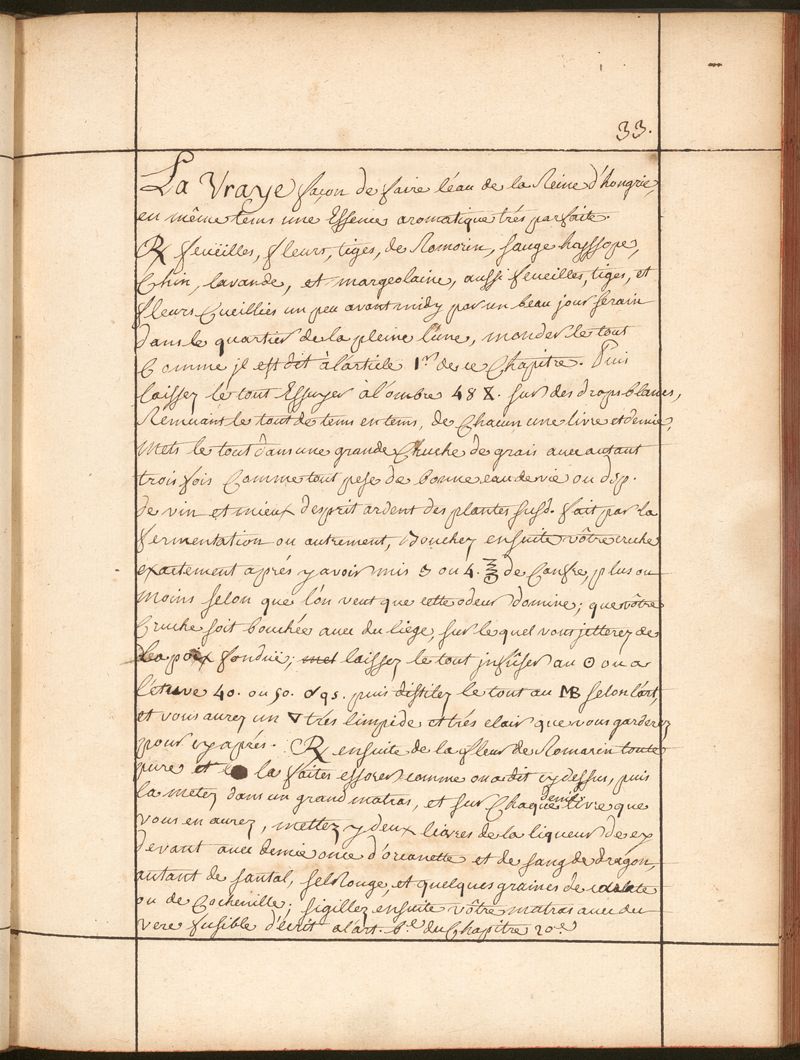 33.
La Vraye façon de faire léau de la Reine d'hongrie,
en même tems une Essence aromatique trés parfaite.
℞ feueilles, fleurs, tiges, de Romorin, sauge hayssope,
thin, lavande, et margeolaine, aussi feueilles, tiges, et
fleurs Cueillies un peu avant midy par un beau jour serain
dans le quartier de la pleine lune, monder le tout
Comme jl est dit à larticle 1.er de ce Chapitre. Puis
laissez le tout Essuyer à l'ombre 48 X. sur des draps blancs,
Remuant le tout de tems en tems, de Chacun une livre et demie,
Mets le tout dans une grande Cruche de grais avec autant
trois fois Comme tout pese de bonne eau de vie ou dsp.
de vin et mieux desprit ardent des plantes susd. fait par la
fermentation ou autrement, Bouchez ensuite vôtre cruche
exactement aprés y avoir mis 3 ou 4. ℥ de Canfre, plus ou
moins selon que l'on veut que cette odeur domine; que vôtre
Cruche soit bouchée avec du liege, sur le quel vous jetterez de
la poix fondüe; laissez le tout jnfuser au ☉ ou a
l'étuve 40. ou 50. jrs. puis distilez le tout au MB selon l'art,
et vous aurez un ▽ trés limpide et trés clair que vous garderez
pour cy aprés. ℞ ensuite de la fleur de Romarin toute
pure et la faites essorer comme on a dit cy dessus, puis
la metez dans un grand matras, et sur Chaque demi livre que
vous en aurez, mettez y deux livres de la liqueur de cy
devant avec demie once d'orcanette et de sang de dragon,
autant de santal, sel Rouge, et quelques graines de
ou de Cochenille; sigillez ensuite vôtre matras avec du
vere fusible d'écrit a lart. 6.e du Chapitre 20.e